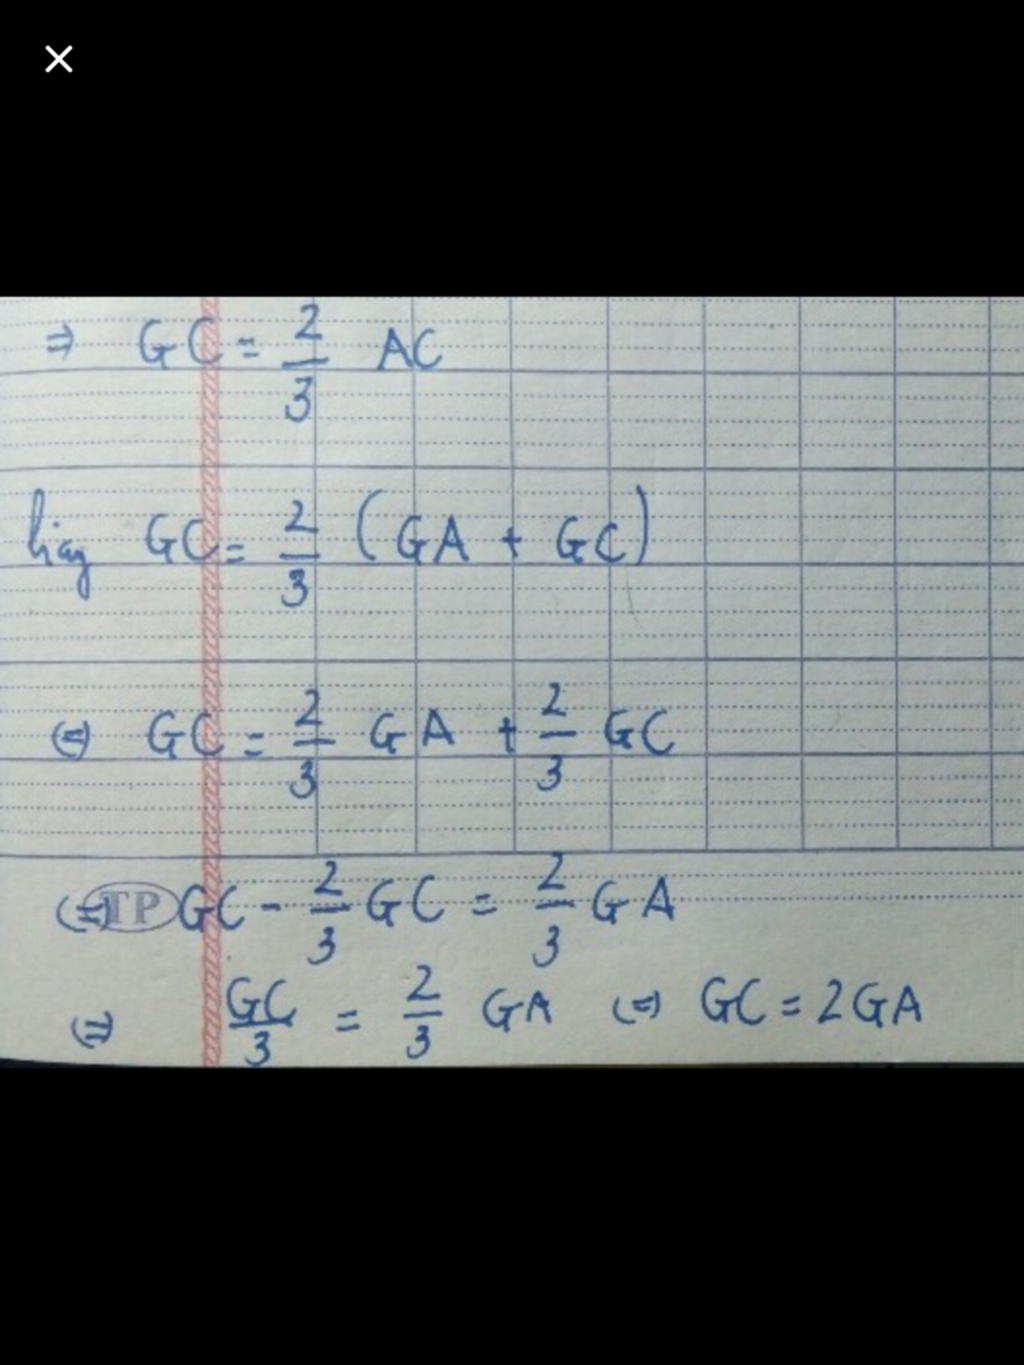 ⇒ GC = 2/3 AC
hay GC = 2/3 (GA + GC)
(=) GC = 2/3 GA + 2/3 GC
(=) TP GC - 2/3 GC = 2/3 GA
(=) GC/3 = 2/3 GA (=) GC = 2GA